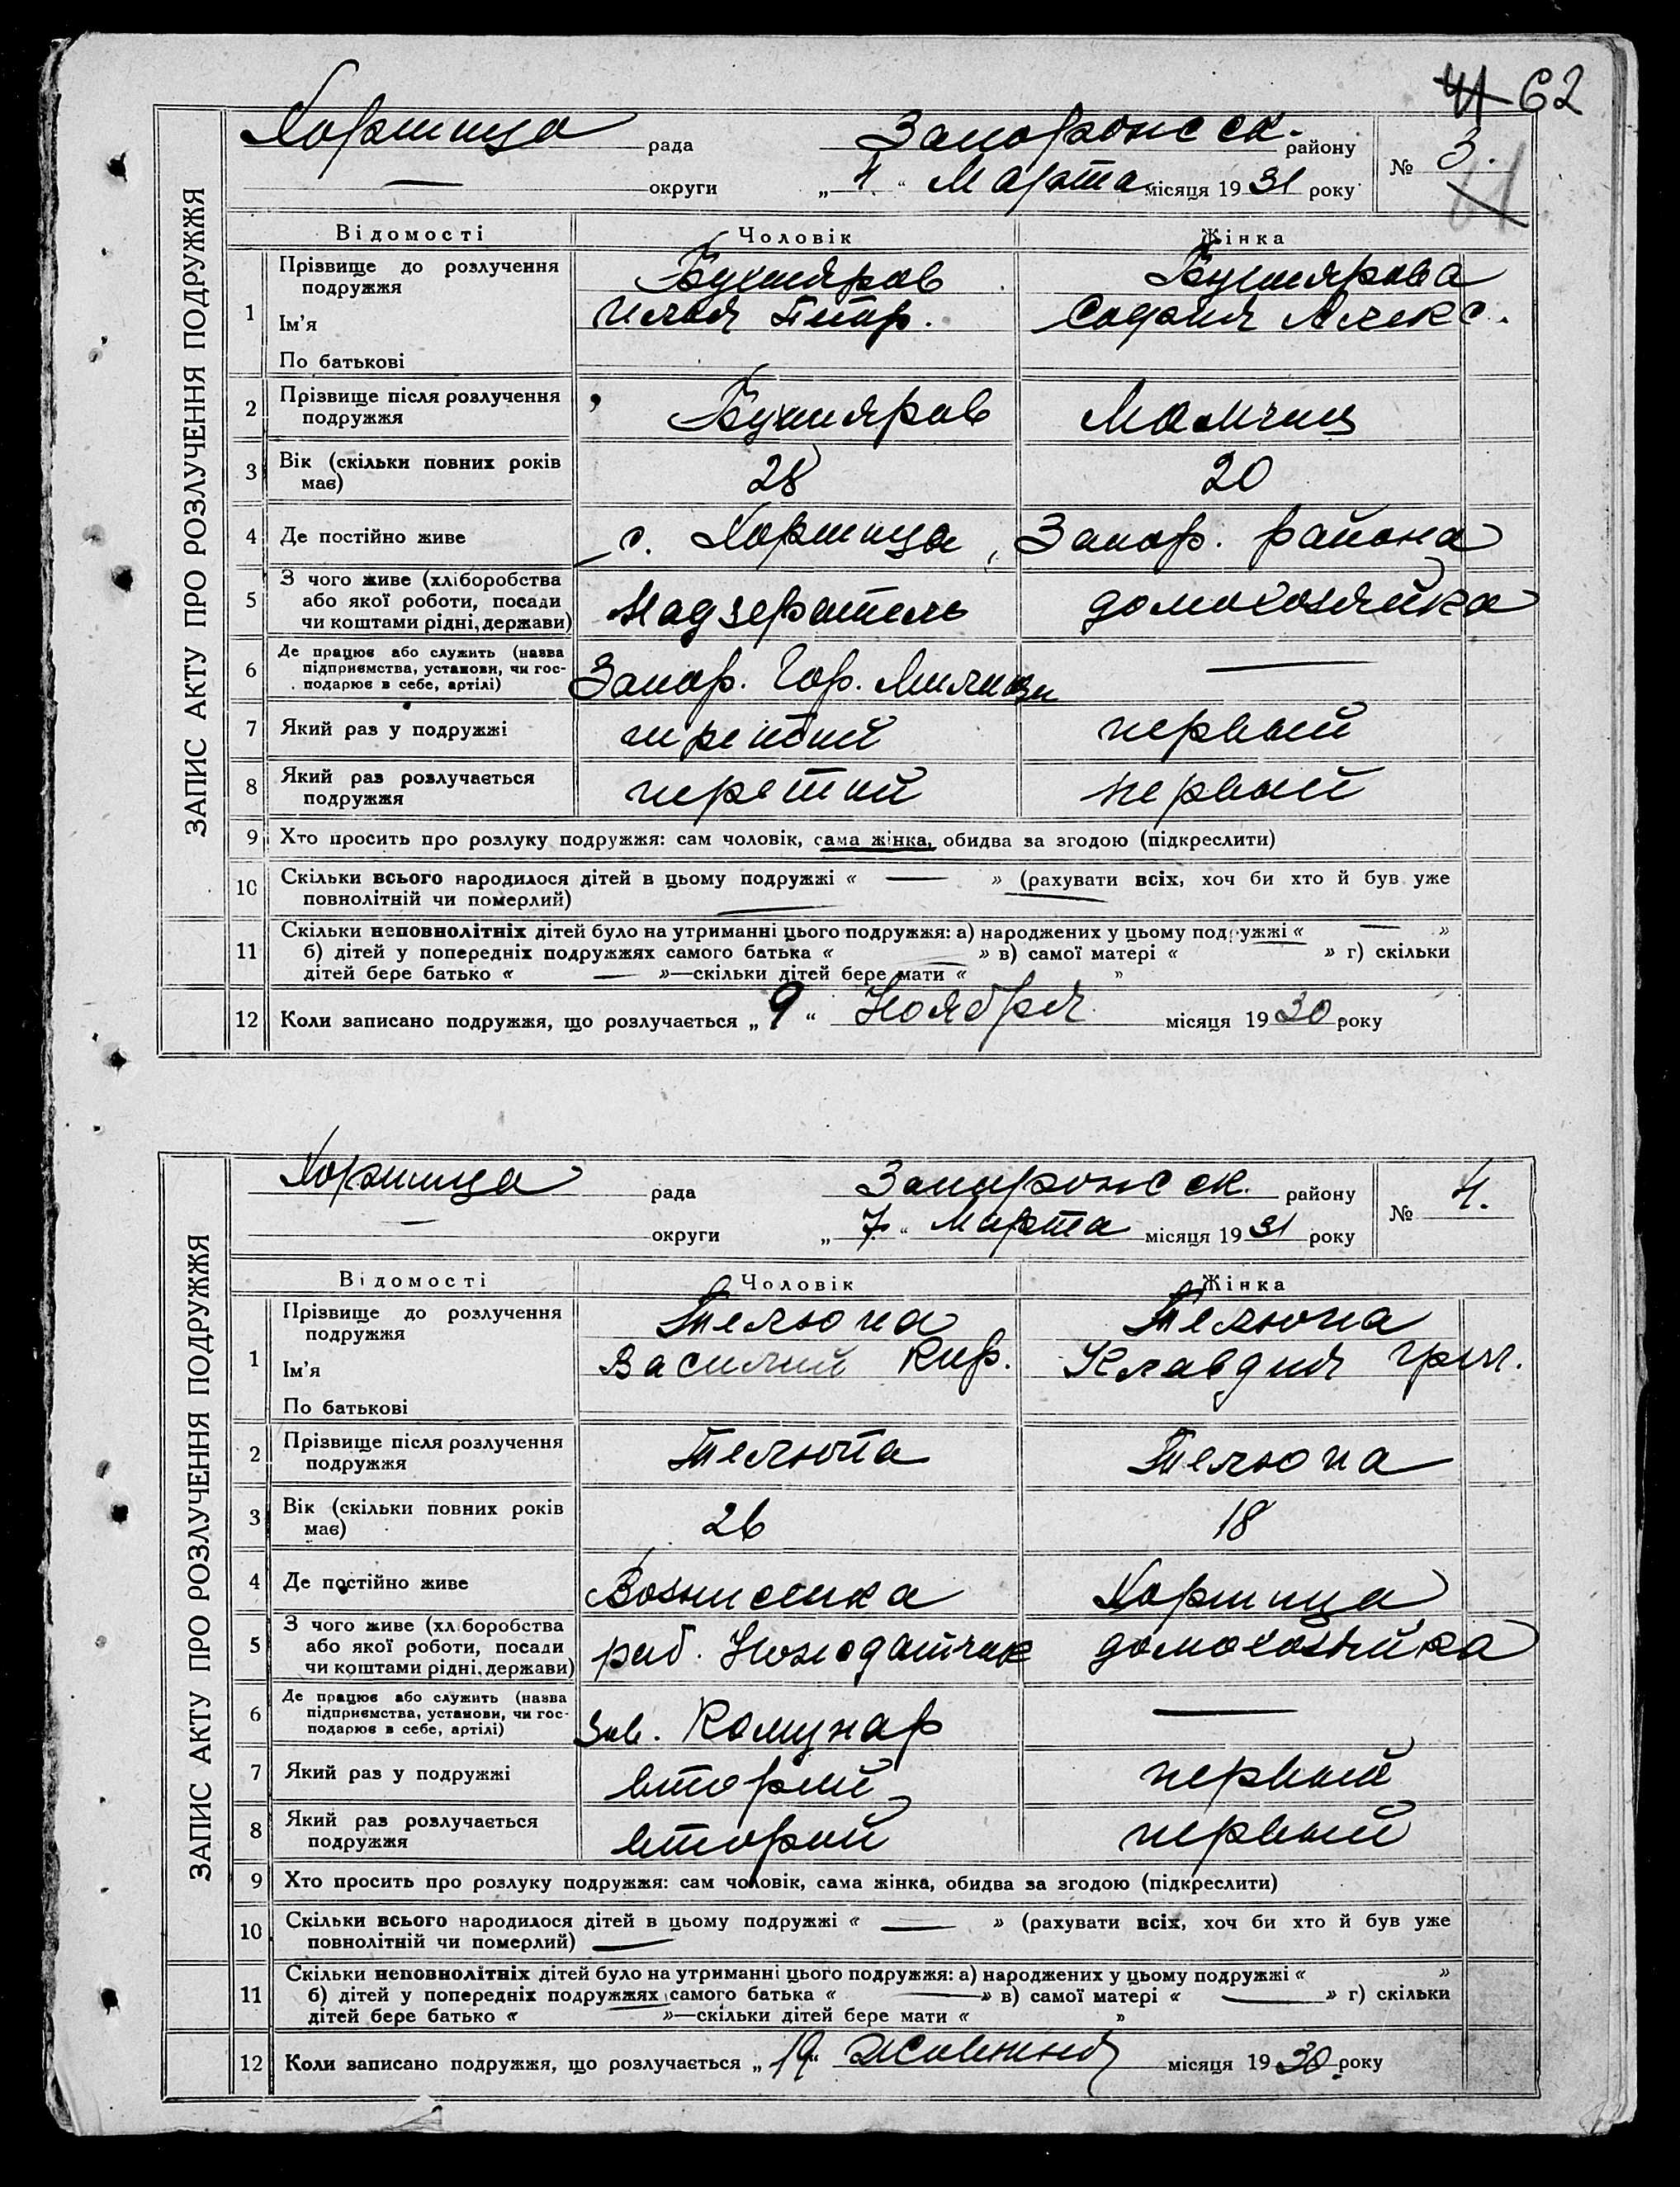 41 62
ЗАПИС АКТУ ПРО РОЗЛУЧЕННЯ ПОДРУЖЖЯ
Хортица рада Запорожск. району № 3.
— округи „ 4. “ Марта місяця 1931 року
Відомості Чоловік Жінка
1 Прізвище до розлучення подружжя
Ім'я Илья Петр. София Алекс.
По батькові
2 Прізвище після розлучення подружжя
3 Вік (скільки повних років має) 28 20
4 Де постійно живе с. Хортица, Запор. района
5 З чого живе (хліборобства або якої роботи, посади чи коштами рідні, держави) Надзератель домохозяйка
6 Де працює або служить (назва підприємства, установи, чи господарює в себе, артілі) Запор. Гор. Милиции —
7 Який раз у подружжі третий первый
8 Який раз розлучається подружжя третий первый
9 Хто просить про розлуку подружжя: сам чоловік, сама жінка, обидва за згодою (підкреслити)
10 Скільки всього народилося дітей в цьому подружжі « — » (рахувати всіх, хоч би хто й був уже
повнолітній чи померлий) —
11 Скільки неповнолітніх дітей було на утриманні цього подружжя: а) народжених у цьому подружжі « — »
б) дітей у попередніх подружжях самого батька « — » в) самої матері « » г) скільки
дітей бере батько « — »—скільки дітей бере мати « »
12 Коли записано подружжя, що розлучається „ 9 “ Ноября місяця 1930 року
ЗАПИС АКТУ ПРО РОЗЛУЧЕННЯ ПОДРУЖЖЯ
Хортица рада Запорожск. району № 4.
— округи „ 7 “ Марта місяця 1931 року
Відомості Чоловік Жінка
1 Прізвище до розлучення подружжя Телюпа Телюпа
Ім'я Василий Кир. Клавдия Григ.
По батькові
2 Прізвище після розлучення подружжя Телюпа Телюпа
3 Вік (скільки повних років має) 26 18
4 Де постійно живе Вознисенка Хортица
5 З чого живе (хліборобства або якої роботи, посади чи коштами рідні, держави) раб. домохозяйка
6 Де працює або служить (назва підприємства, установи, чи господарює в себе, артілі) Зав. Комунар —
7 Який раз у подружжі вторий первый
8 Який раз розлучається подружжя вторий первый
9 Хто просить про розлуку подружжя: сам чоловік, сама жінка, обидва за згодою (підкреслити)
10 Скільки всього народилося дітей в цьому подружжі « — » (рахувати всіх, хоч би хто й був уже
повнолітній чи померлий) —
11 Скільки неповнолітніх дітей було на утриманні цього подружжя: а) народжених у цьому подружжі « »
б) дітей у попередніх подружжях самого батька « — » в) самої матері « — » г) скільки
дітей бере батько « »—скільки дітей бере мати « »
12 Коли записано подружжя, що розлучається „ 19 “ Жовтня місяця 1930 року